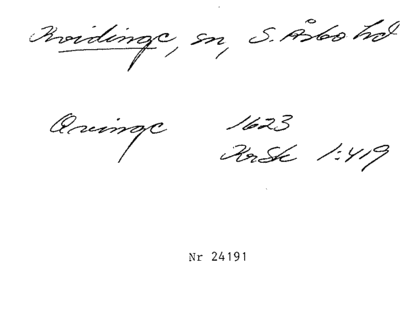 Kvidinge, sn, S. Åsbo hd
Qvinge 1623
KrSk 1:419
Nr 24191